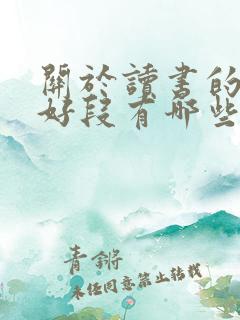 關於讀書的
好段有哪些
青鏘
未经同意禁止转载